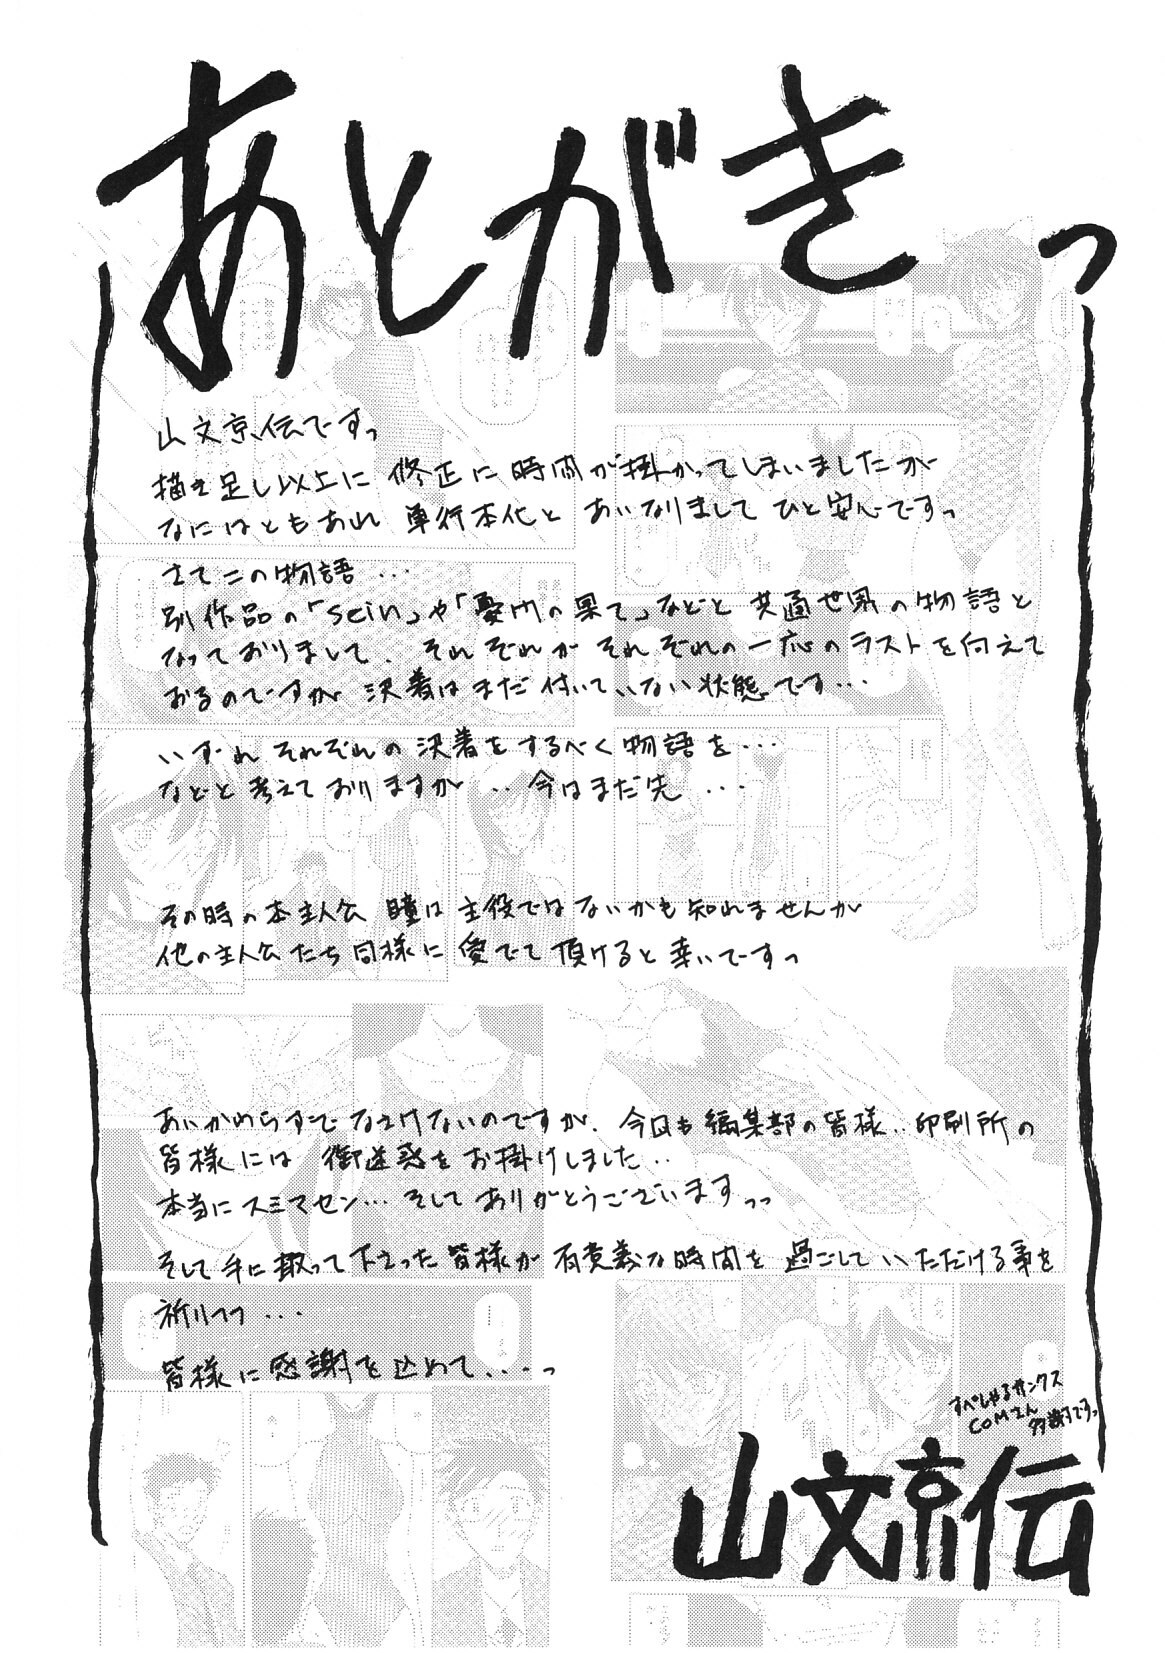 あとがきっ
山文京伝ですっ
描き足し以上に 修正に時間が掛かってしまいましたが
なにはともあれ 単行本化と あいなりまして ひと安心ですっ
さてこの物語…
別作品の「sein」や「憂内の果て」などと 共通世界の物語と
なっておりまして、それぞれが それぞれの一応のラストを向えて
おるのですが 決着はまだ付いていない状態です…
いずれ それぞれの決着をするべく物語を…
などと考えておりますが‥今はまだ先…
その時の本主人公 瞳は主役ではないかも知れませんが
他の主人公たち同様に愛でて頂けると幸いですっ
あいかわらずで なさけないのですが、今回も編集部の皆様‥印刷所の
皆様には 御迷惑をお掛けしました‥
本当にスミマセン…そしてありがとうございますっっ
そして手に取って下さった皆様が 有意義な時間を 過ごしていただける事を
祈りつつ…
皆様に感謝を込めて…っ
すぺしゃるサンクス
COMさん 多謝ですっ
山文京伝